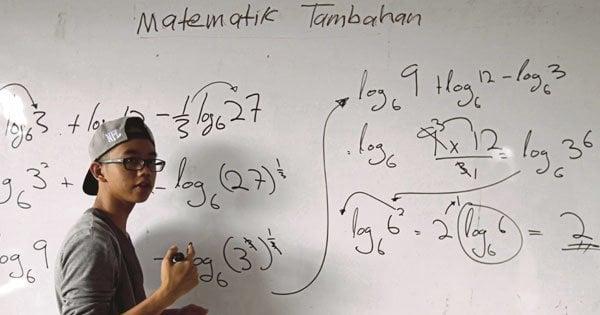 Matematik Tambahan
log₆3 + log 12 - 1/3 log₆27
g₆3² + - log₆(27)^1/3
log₆9 - log₆(3^3)^1/3
log₆9 + log₆12 - log₆3
log₆ 9 x 12 / 3 = log₆36
log₆6² = 2 log₆6 = 2
NFL